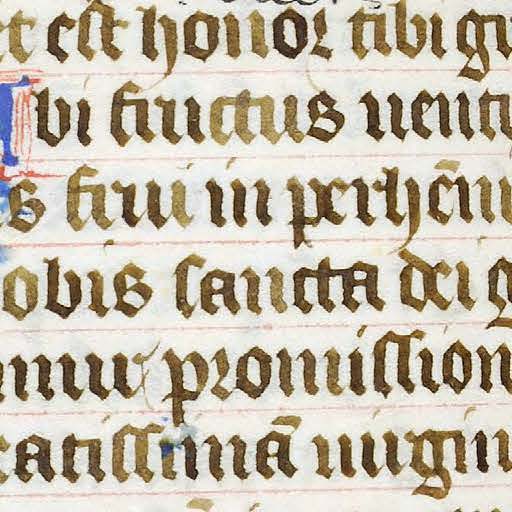 et est honor tibi gu
ibi fructus uentr
s frui in perhēnn
obis sancta dei g
mur promission
catissimā uirgin